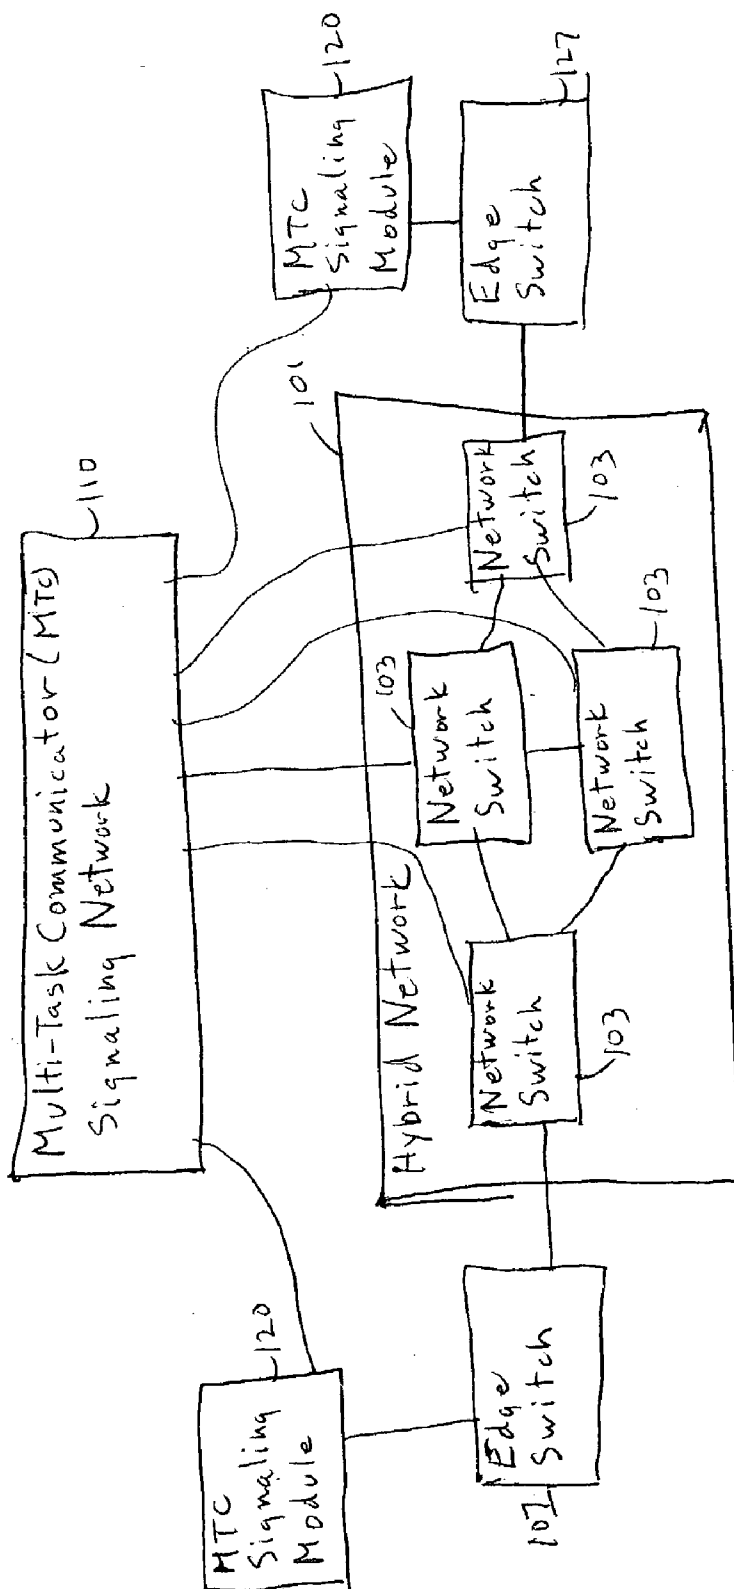 Multi-Task Communicator (MTC)
Signaling Network
110
MTC
Signaling
Module
120
MTC
Signaling
Module
120
101
Hybrid Network
Network
Switch
103
Network
Switch
103
Network
Switch
103
Network
Switch
103
Edge
Switch
107
Edge
Switch
127